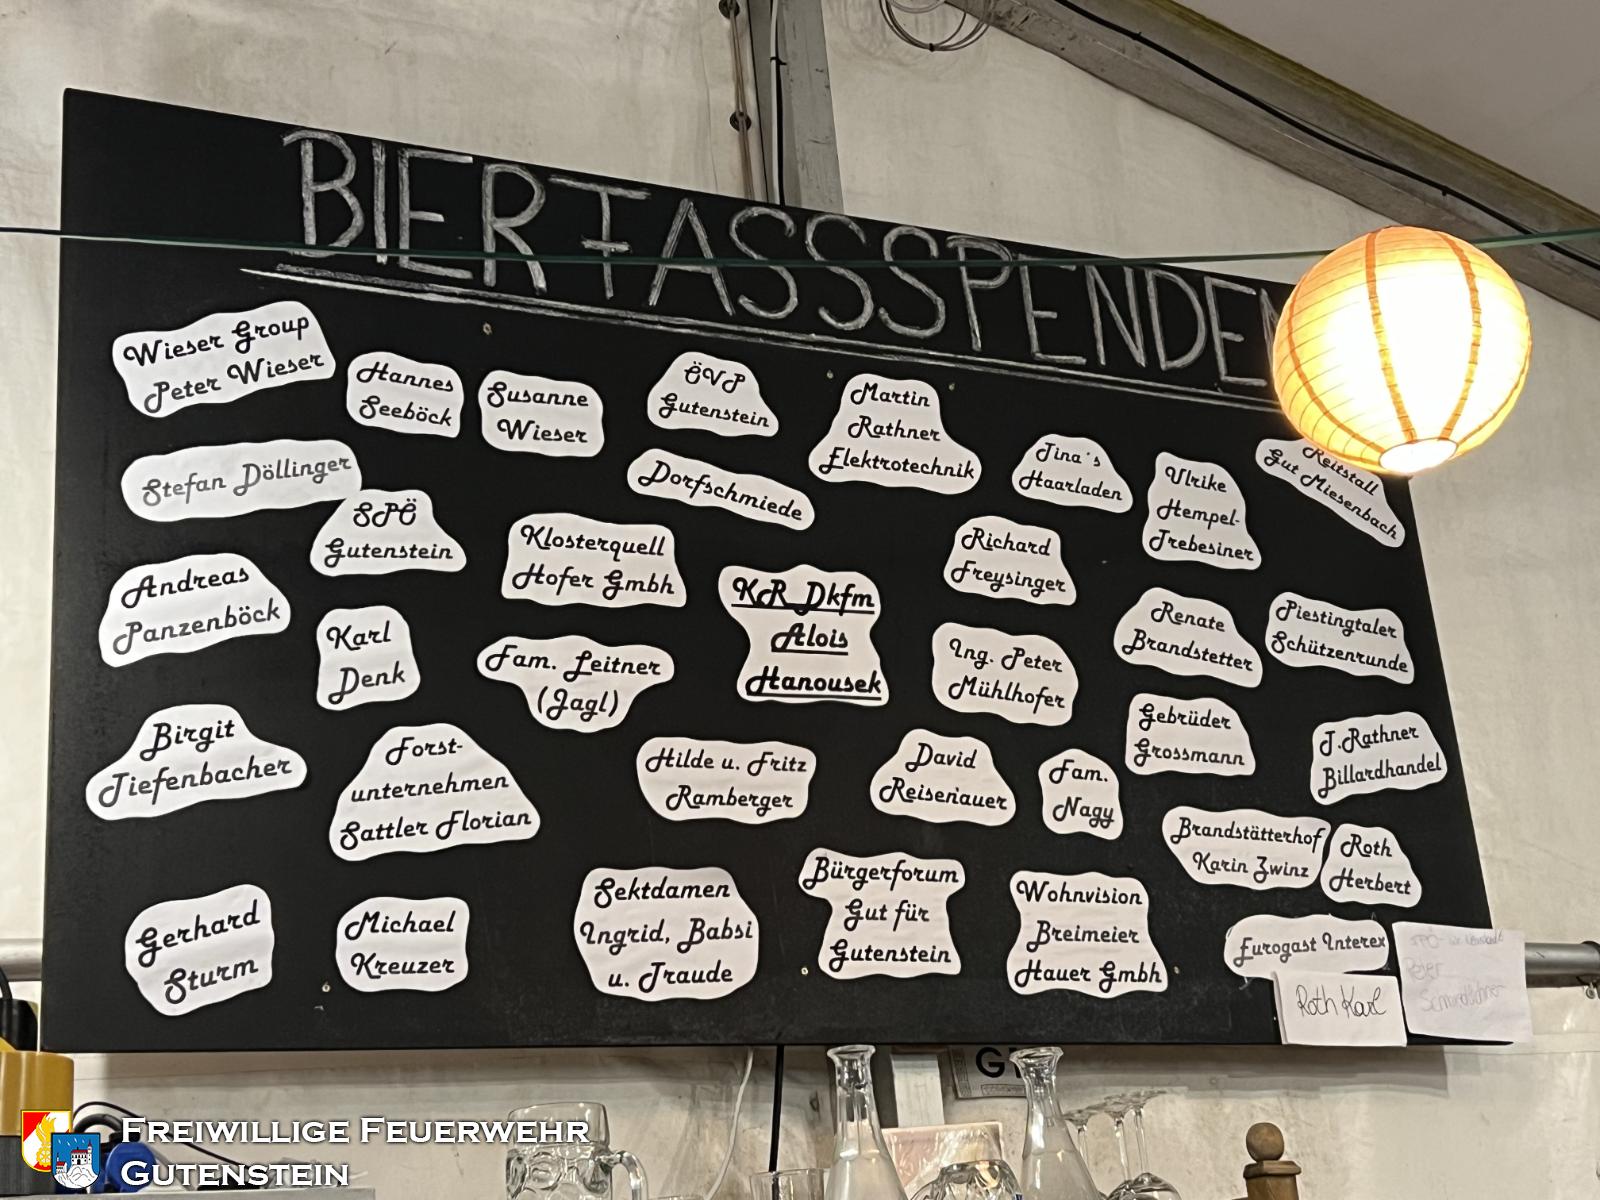 BIERFASSSPENDEN
Wieser Group
Peter Wieser
Hannes
Seeböck
Susanne
Wieser
ÖVP
Gutenstein
Martin
Rathner
Elektrotechnik
Tina´s
Haarladen
Ulrike
Hempel-
Trebesiner
Reitstall
Gut Miesenbach
Stefan Döllinger
SPÖ
Gutenstein
Dorfschmiede
Klosterquell
Hofer Gmbh
Richard
Freysinger
Andreas
Panzenböck
Karl
Denk
Fam. Leitner
(Jagl)
KR Dkfm
Alois
Hanousek
Ing. Peter
Mühlhofer
Renate
Brandstetter
Piestingtaler
Schützenrunde
Birgit
Tiefenbacher
Forst-
unternehmen
Sattler Florian
Hilde u. Fritz
Ramberger
David
Reisenauer
Fam.
Nagy
Gebrüder
Grossmann
J.Rathner
Billardhandel
Brandstätterhof
Karin Zwinz
Roth
Herbert
Gerhard
Sturm
Michael
Kreuzer
Sektdamen
Ingrid, Babsi
u. Traude
Bürgerforum
Gut für
Gutenstein
Wohnvision
Breimeier
Hauer Gmbh
Eurogast Interex
Roth Karl
SPÖ-
Peter
Freiwillige Feuerwehr
Gutenstein